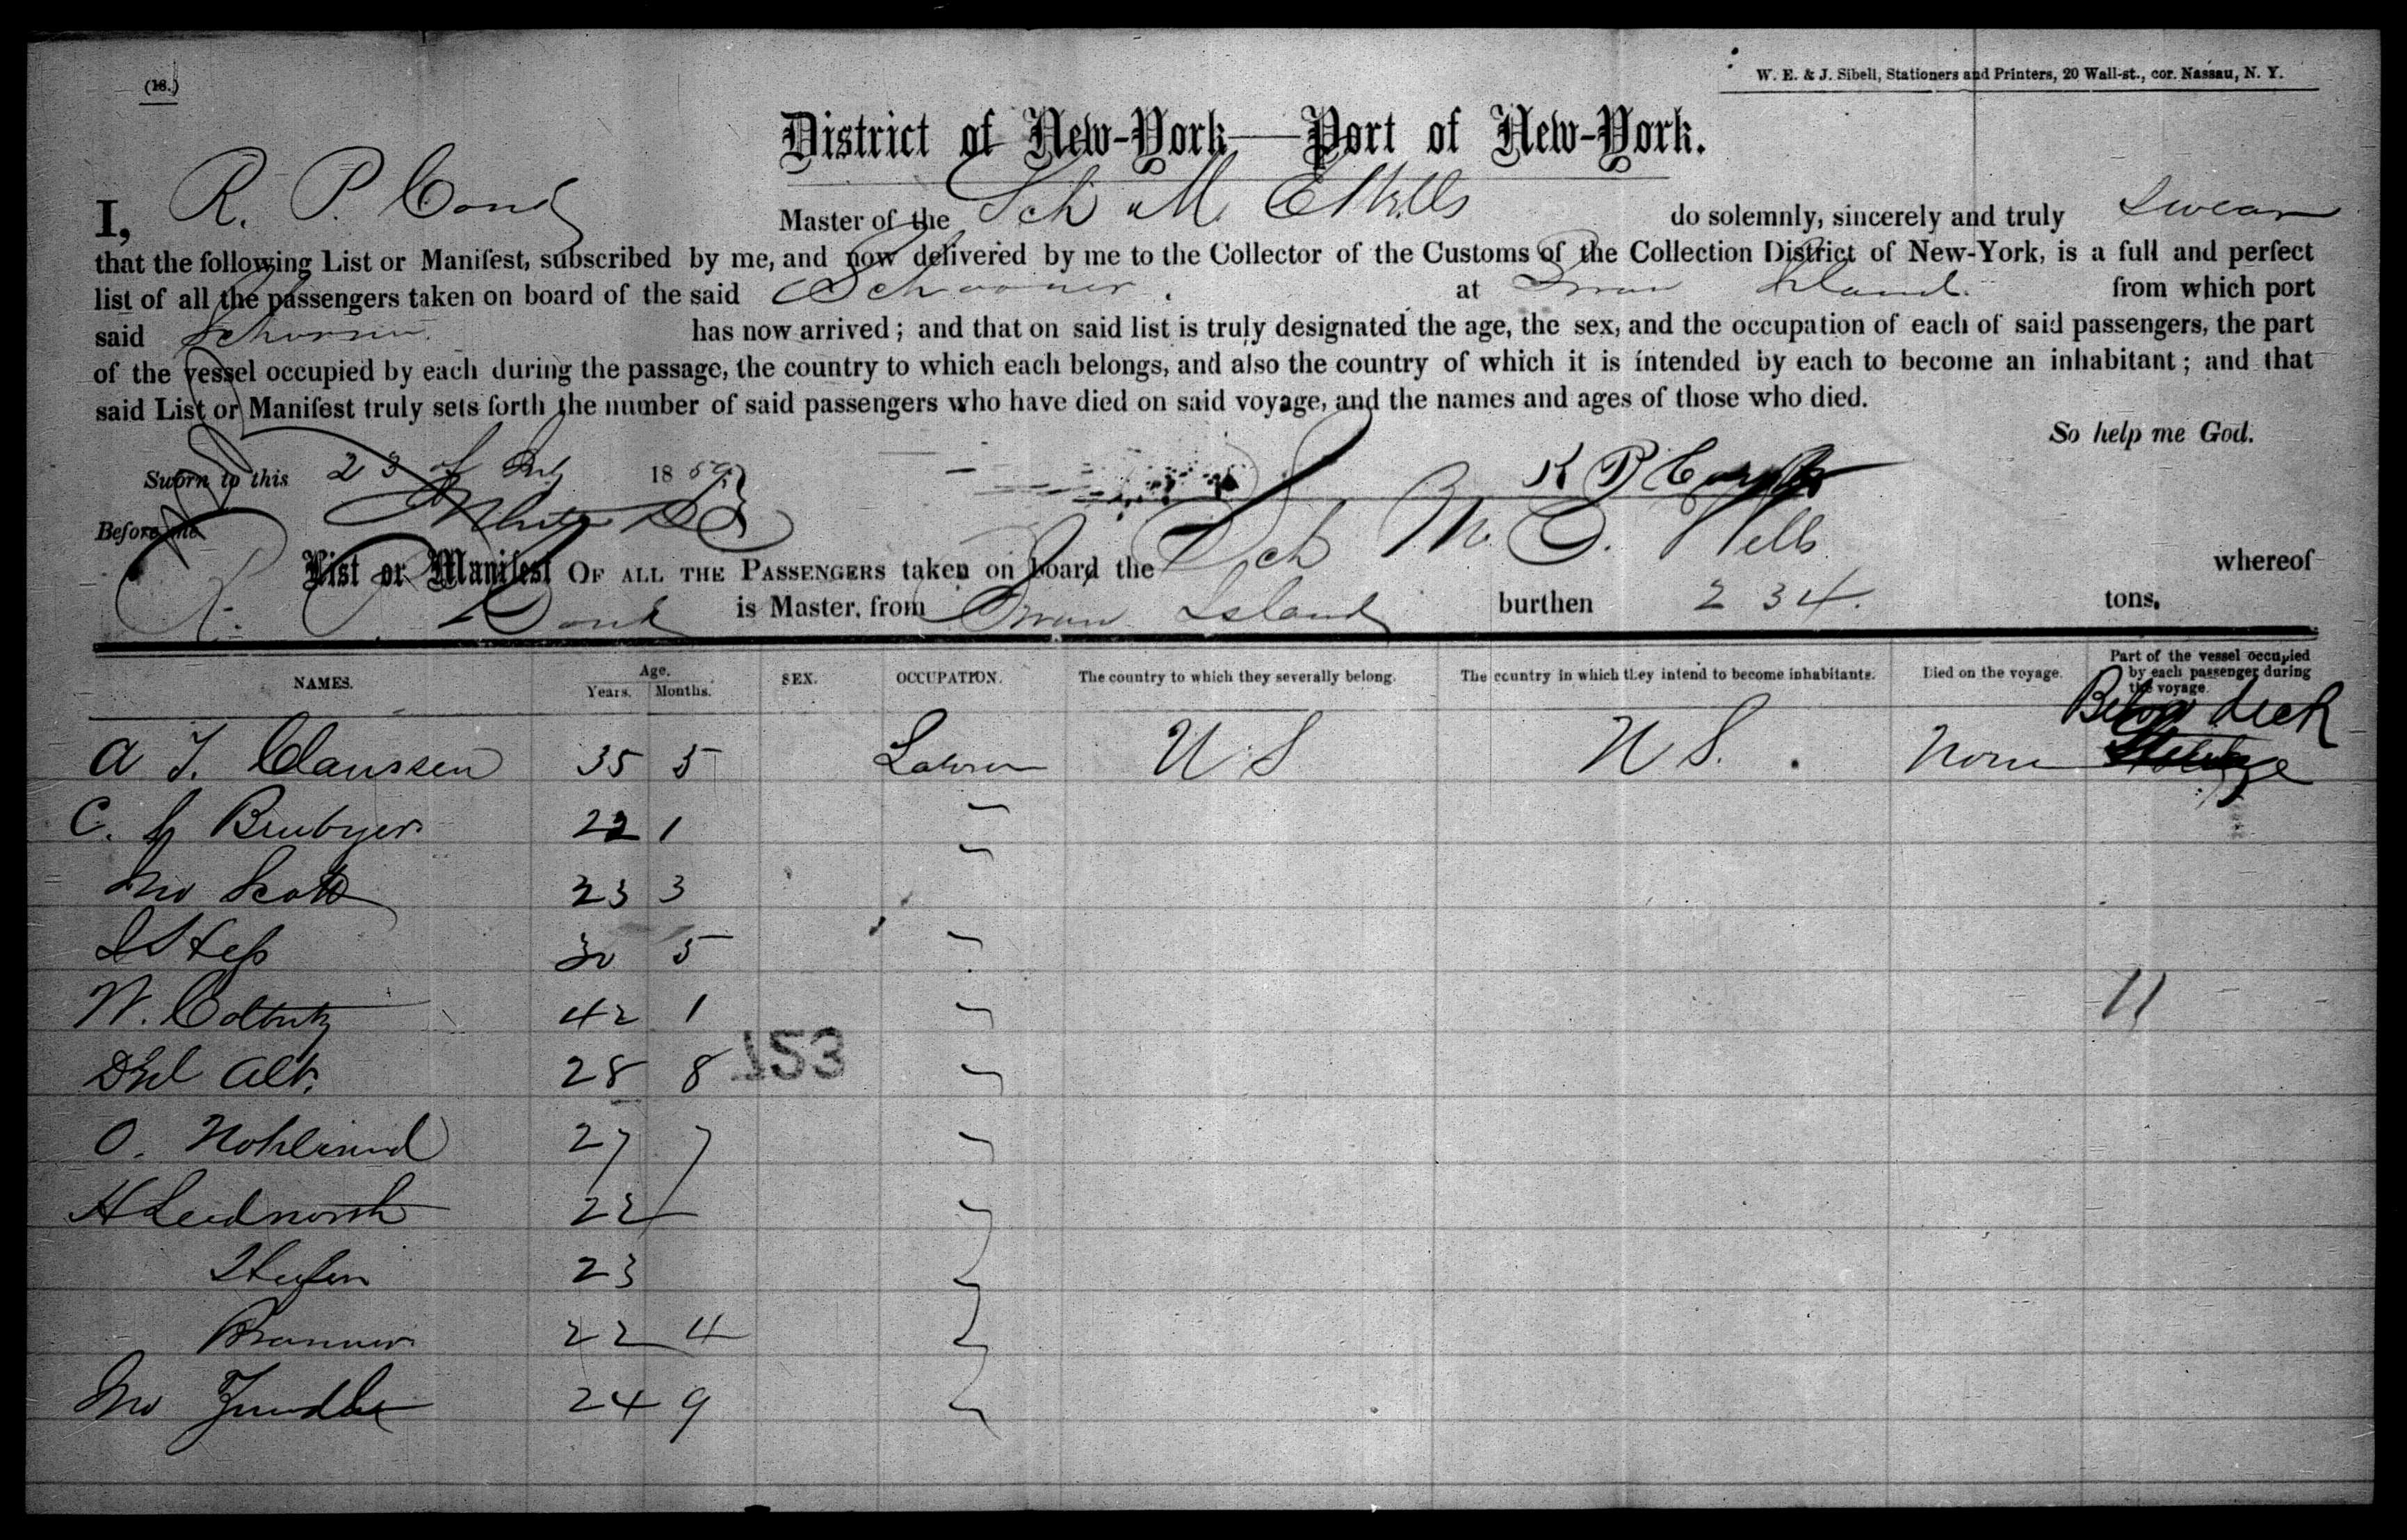 (18.)
W. E. & J. Sibell, Stationers and Printers, 20 Wall-st., cor. Nassau, N. Y.
District of New-York—Port of New-York.
I, R. P. Master of the Sch M. E Wells do solemnly, sincerely and truly swear
that the following List or Manifest, subscribed by me, and now delivered by me to the Collector of the Customs of the Collection District of New-York, is a full and perfect
list of all the passengers taken on board of the said Schooner at Swan Island. from which port
said Schooner has now arrived; and that on said list is truly designated the age, the sex, and the occupation of each of said passengers, the part
of the vessel occupied by each during the passage, the country to which each belongs, and also the country of which it is intended by each to become an inhabitant; and that
said List or Manifest truly sets forth the number of said passengers who have died on said voyage, and the names and ages of those who died.
So help me God.
Sworn to this 23 of 1859 R P
Before me
List or Manifest OF ALL THE PASSENGERS taken on board the Sch M. E. Wells whereof
R. P. is Master, from Swan Island burthen 234. tons.
NAMES. Age. Years. Months. SEX. OCCUPATION. The country to which they severally belong. The country in which they intend to become inhabitants. Died on the voyage. Part of the vessel occupied by each passenger during the voyage.
Below deck
A T. Claussen 35 5 Laborer U S U S. None
C. Brubyer 22 1
Jno Scott 23 3
Hess 30 5
W. 42 1 11
Alt. 28 8
153
O. 27 7
H 22
23
22 4
Jno 24 9